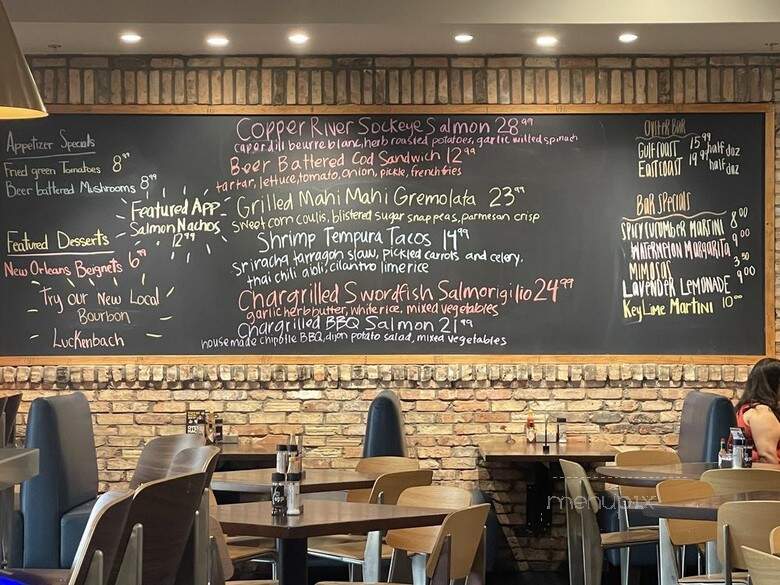 Appetizer Specials
Fried green Tomatoes 8⁹⁹
Beer battered Mushrooms 8⁹⁹
Featured App
Salmon Nachos
12⁹⁹
Featured Desserts
New Orleans Beignets 6⁹⁹
Try our New Local
Bourbon
Luckenbach
Copper River Sockeye Salmon 28⁹⁹
caper dill beurre blanc, herb roasted potatoes, garlic wilted spinach
Beer Battered Cod Sandwich 12⁹⁹
tartar, lettuce, tomato, onion, pickle, french fries
Grilled Mahi Mahi Gremolata 23⁹⁹
sweet corn coulis, blistered sugar snap peas, parmesan crisp
Shrimp Tempura Tacos 14⁹⁹
sriracha tarragon slaw, pickled carrots and celery,
thai chili aioli, cilantro lime rice
Chargrilled Swordfish Salmorigilio 24⁹⁹
garlic herb butter, white rice, mixed vegetables
Chargrilled BBQ Salmon 21⁹⁹
house made chipotle BBQ, dijon potato salad, mixed vegetables
OYSTER BAR
GULF COAST 15.⁹⁹ half doz
EAST COAST 19.⁹⁹ half doz
BAR SPECIALS
SPICY CUCUMBER MARTINI 8⁰⁰
WATERMELON MARGARITA 9⁰⁰
MIMOSAS 3.⁵⁰
LAVENDER LEMONADE 9⁰⁰
KEY LIME MARTINI 10⁰⁰
menupix